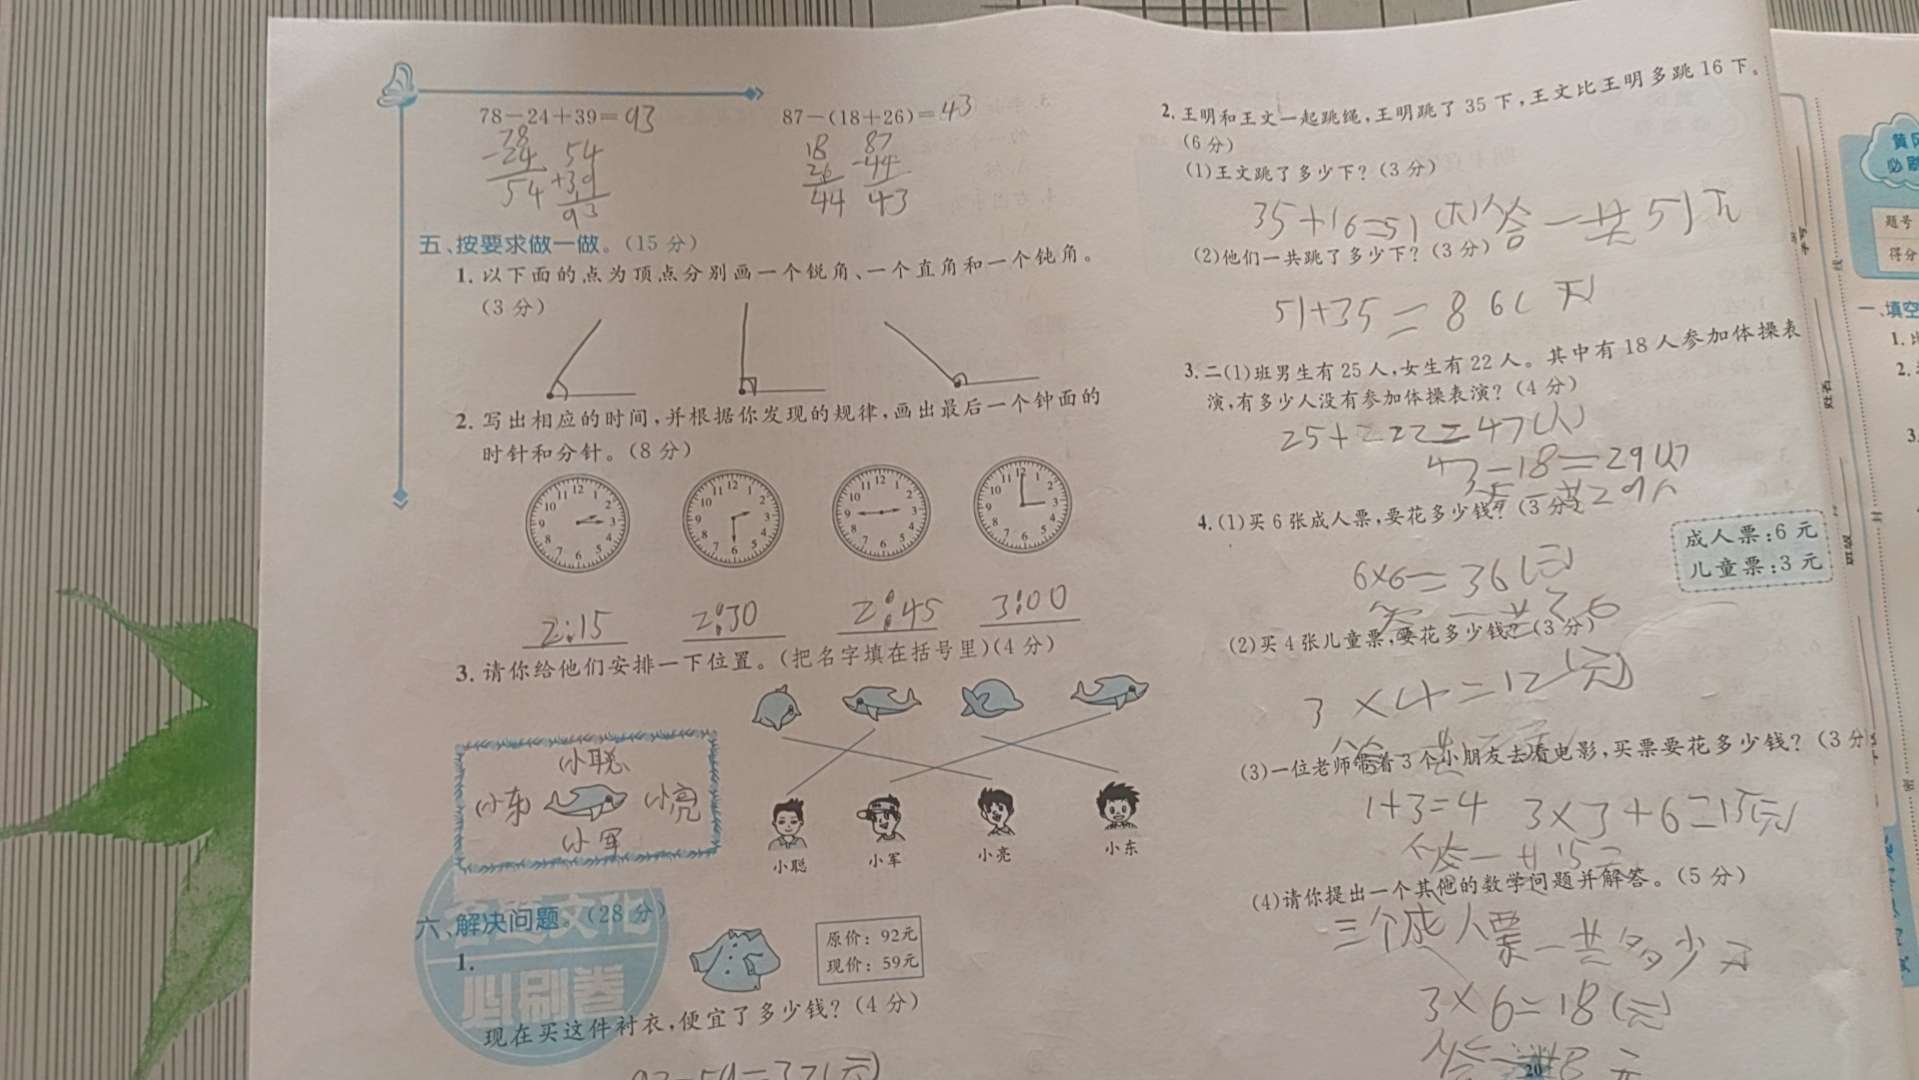 78-24+39=93
87-(18+26)=43
78
-24
54
54
+39
93
18
26
44
87
-44
43
五、按要求做一做。(15 分)
1. 以下面的点为顶点分别画一个锐角、一个直角和一个钝角。
(3 分)
2. 写出相应的时间,并根据你发现的规律,画出最后一个钟面的
时针和分针。(8 分)
2:15 2:30 2:45 3:00
3. 请你给他们安排一下位置。(把名字填在括号里)(4 分)
(小聪)
(小东) (小亮)
(小军)
小聪 小军 小亮 小东
六、解决问题。(28 分)
必刷卷
1.
原价: 92元
现价: 59元
现在买这件衬衣,便宜了多少钱? (4 分)
2. 王明和王文一起跳绳,王明跳了 35 下,王文比王明多跳 16 下。
(6 分)
(1)王文跳了多少下? (3 分)
35+16=51(下)答一共51下
(2)他们一共跳了多少下? (3 分)
51+35=86(下)
3. 二(1)班男生有 25 人,女生有 22 人。其中有 18 人参加体操表
演,有多少人没有参加体操表演? (4 分)
25+22=47(人)
47-18=29(人)
答一共29人
4. (1)买 6 张成人票,要花多少钱? (3 分)
成人票:6 元
儿童票:3 元
6×6=36(元)
(2)买 4 张儿童票,要花多少钱? (3 分)
3×4=12(元)
(3)一位老师带着 3 个小朋友去看电影,买票要花多少钱? (3 分
1+3=4 3×3+6=15(元)
(4)请你提出一个其他的数学问题并解答。(5 分)
三个成人票一共多少元
3×6=18(元)
20
黄冈
必刷
题号
得分
一、填空
1.
2.
3.